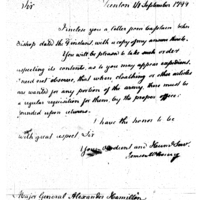 Sir
Trenton 4th September 1799
I inclose you a letter from Captain
Bishop dated the 1st instant, with a copy of my answer thereto.
You will be pleased to take such order
respecting its contents, as to you may appear expedient.
need not observe, that when cloathing or other articles
are wanted for any portion of the army, there must be
a regular requisition for them, by the proper
founded upon returns.
I have the honor to be
with great respect Sir
Your obedient and Humble Servt
James McHenry
Major General Alexander Hamilton